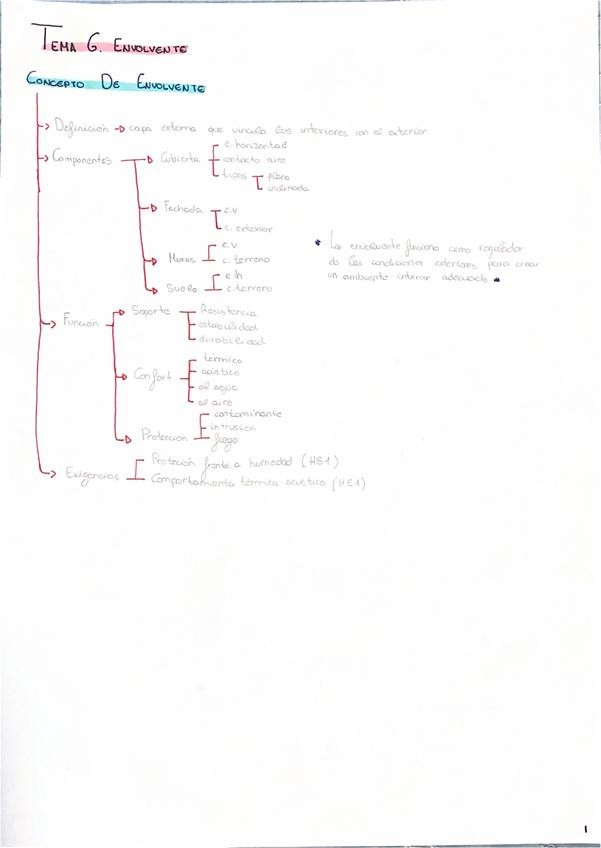 TEMA 6. ENVOLVENTE
CONCEPTO DE ENVOLVENTE
Definición → capa externa que vincula los interiores con el exterior
Componentes
Cubierta
e. horizontal
contacto aire
tipos
plana
inclinada
Fachada
e.v
c. exterior
Muros
e.v
c. terreno
Suelo
e.h
c. terreno
* La envolvente funciona como regulador
de las condiciones exteriores para crear
un ambiente interior adecuado *
Función
Soporte
Resistencia
estabilidad
durabilidad
Confort
térmico
acústico
al agua
al aire
Protección
contaminante
intrusión
fuego
Exigencias
Protección frente a humedad (HS1)
Comportamiento térmico acústico (HE1)
1